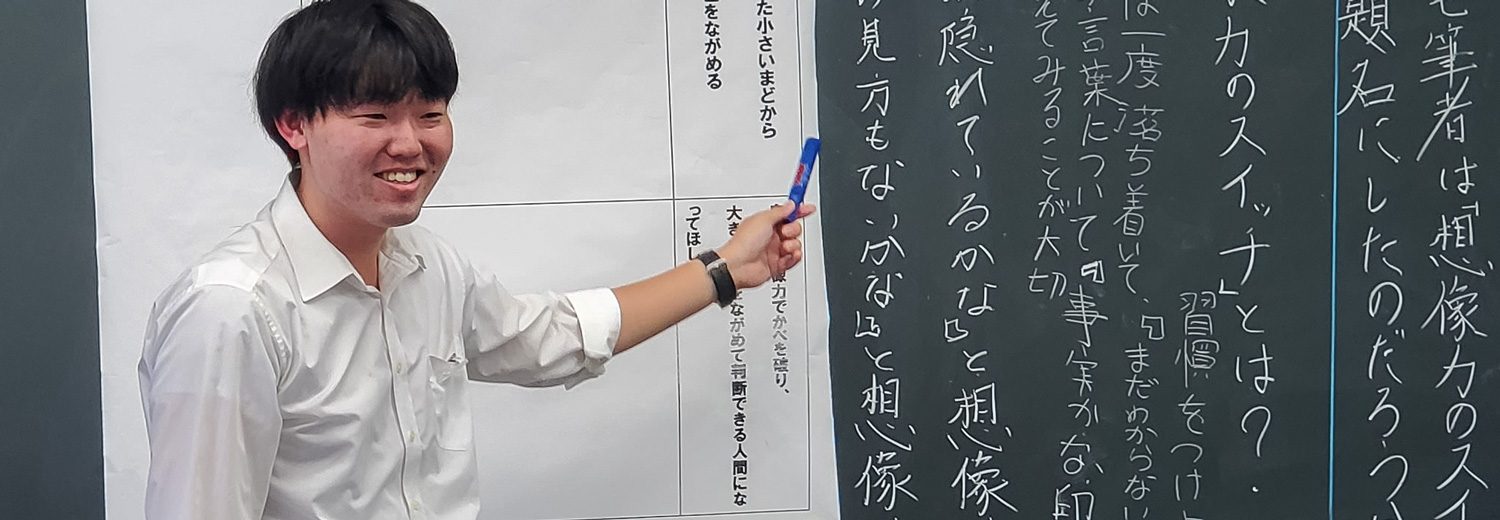 筆者は「想像力のスイ
題名にしたのだろうか
力のスイッチ」とは?
習慣をつけ
は一度落ち着いて、『まだわからない
言葉について『事実かな、印
えてみることが大切
隠れているかな』と想像
見方もないかな』と想像
た小さいまどから
をながめる
像力でかべを破り、
大き
ながめて判断できる人間にな
ってほし